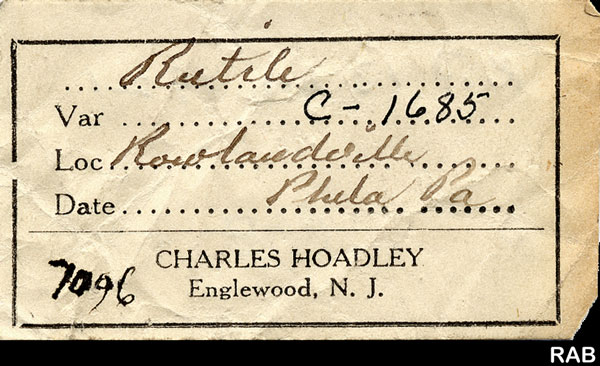 Rutile
Var C-1685
Loc Rowlandville
Date Phila Pa
CHARLES HOADLEY
7096 Englewood, N. J.
RAB